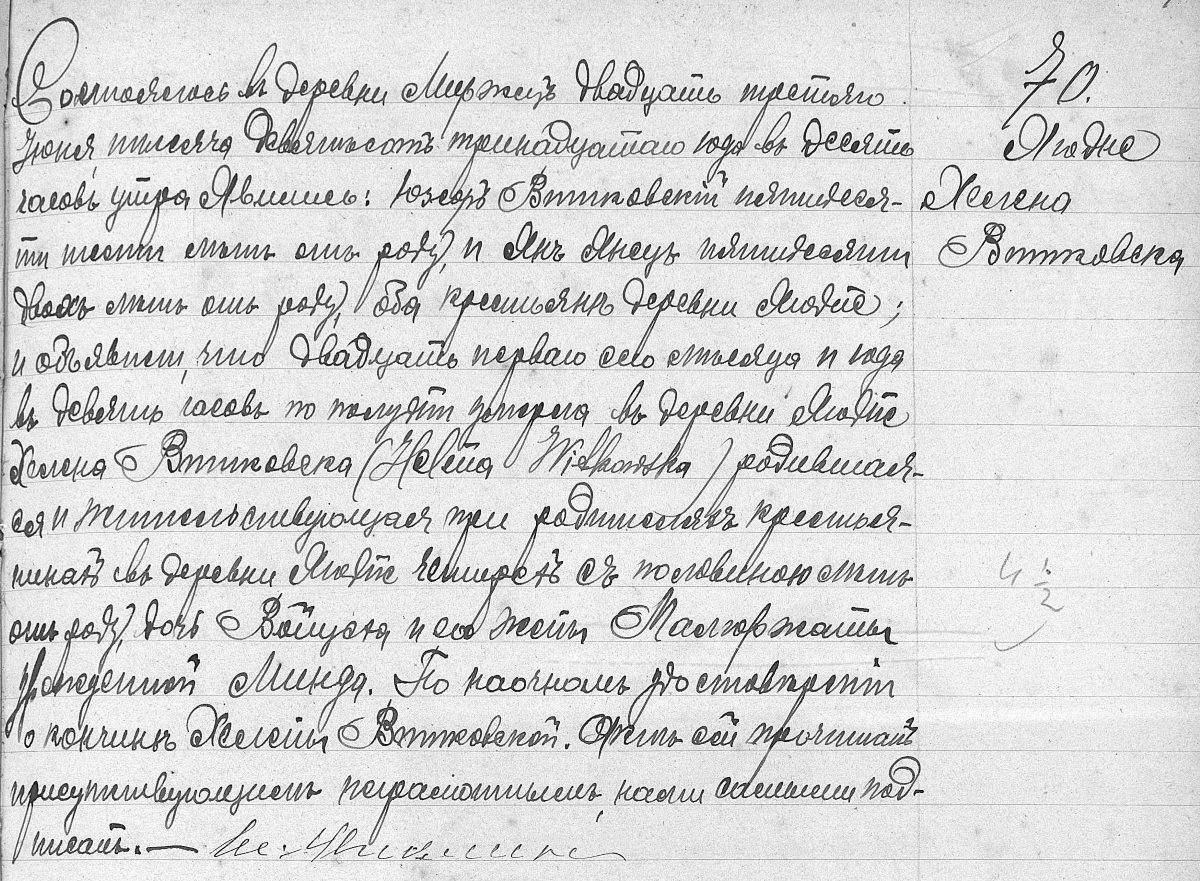 70.
Людне
Хелена
Витковска
Состоялось въ деревни Миржец двадцать третьяго
Іюня, тысяча девятьсотъ тринадцатаго года въ десять
часовъ утра Явились: Юзефъ Витковскій пятидеся-
ти шести лѣтъ отъ роду, и Янъ Янецъ пятидесяти
двохъ лѣтъ отъ роду, оба крестьяне деревни Людне;
и объявили, что двадцать перваго сего мѣсяца и года
въ девять часовъ по полудни умерла въ деревни Людне
Хелена Витковска (Helena Witkowska) родившая-
ся и жительствующая при родителяхъ крестья-
нинахъ въ деревни Людне четырехъ съ половиною лѣтъ
отъ роду, дочь Войцеха и его жены Малгоржаты
урожденной Минда. По наочномъ удостовѣреніи
о кончинѣ Хелены Витковской. Актъ сей прочитанъ
присутствующимъ неграмотнымъ, нами самыми под-
писанъ.—
4 1/2